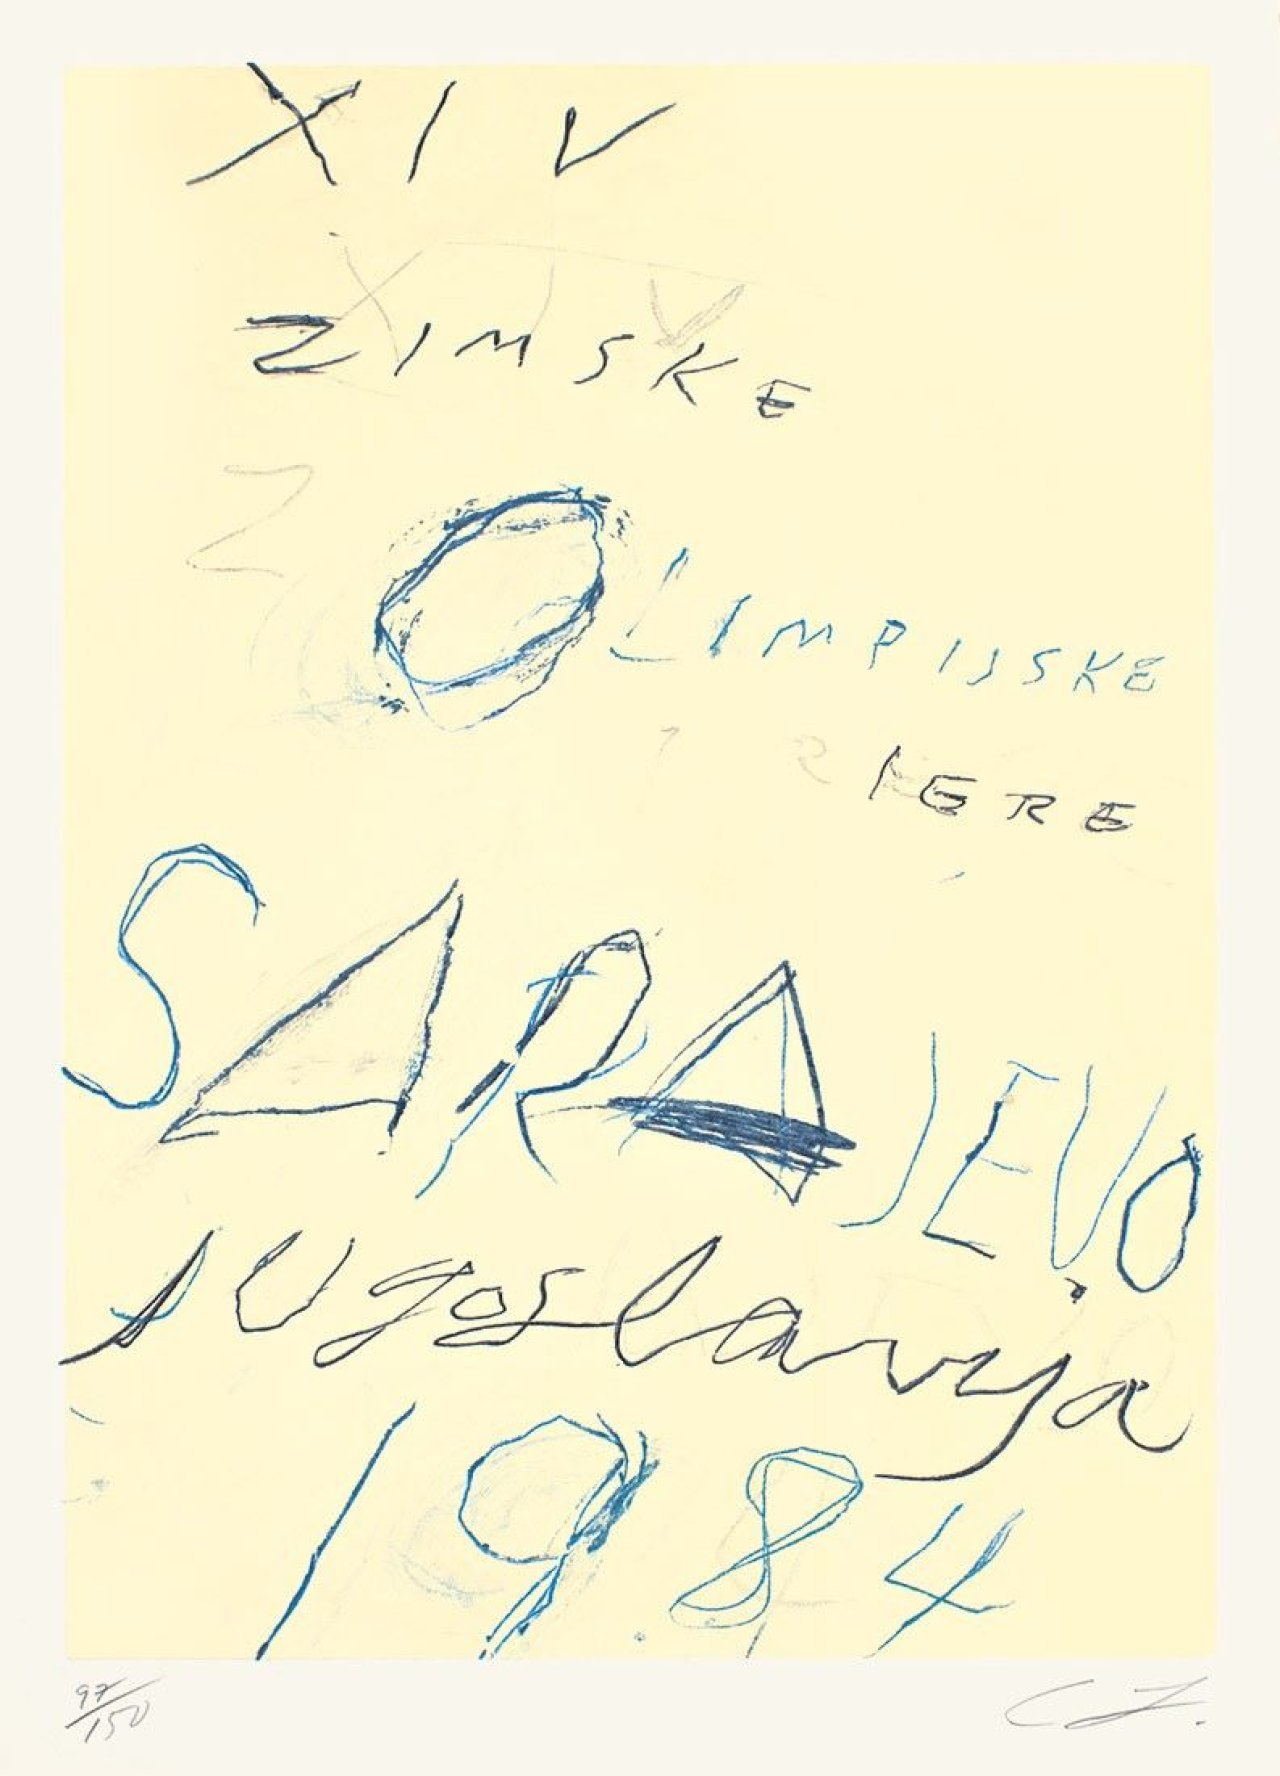 XIV
ZIMSKE
OLIMPIJSKE
IERE
SARAJEVO
Jugoslavija
1984
97/150